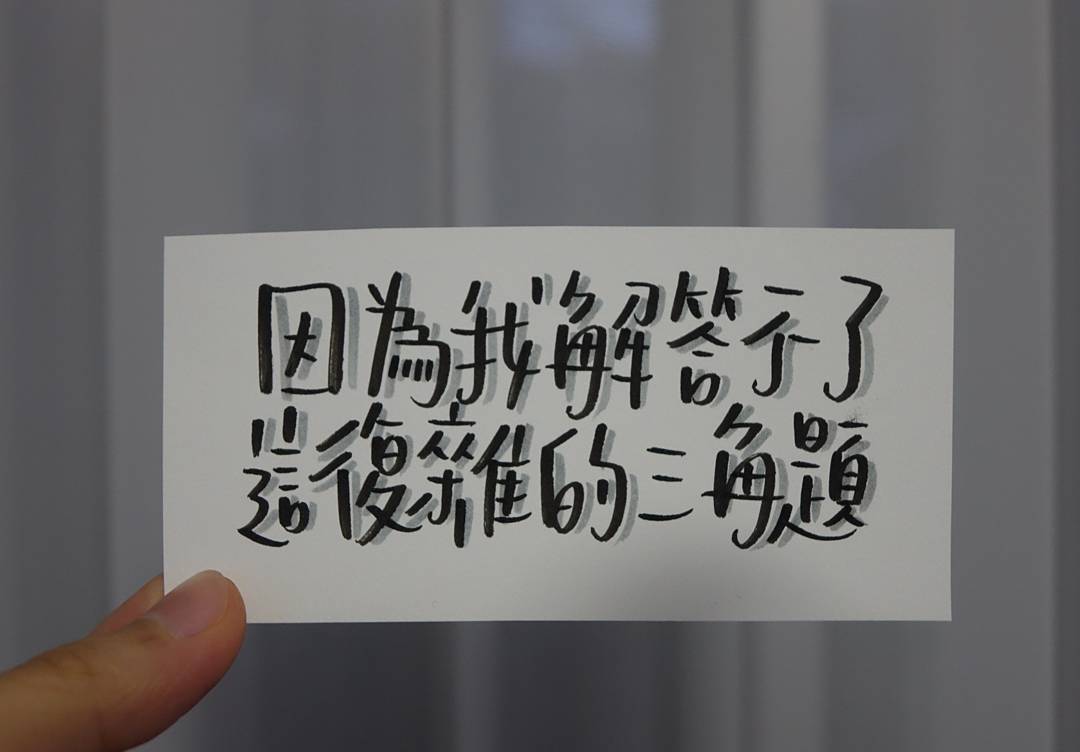 因為我解答不了
這復雜的三角題